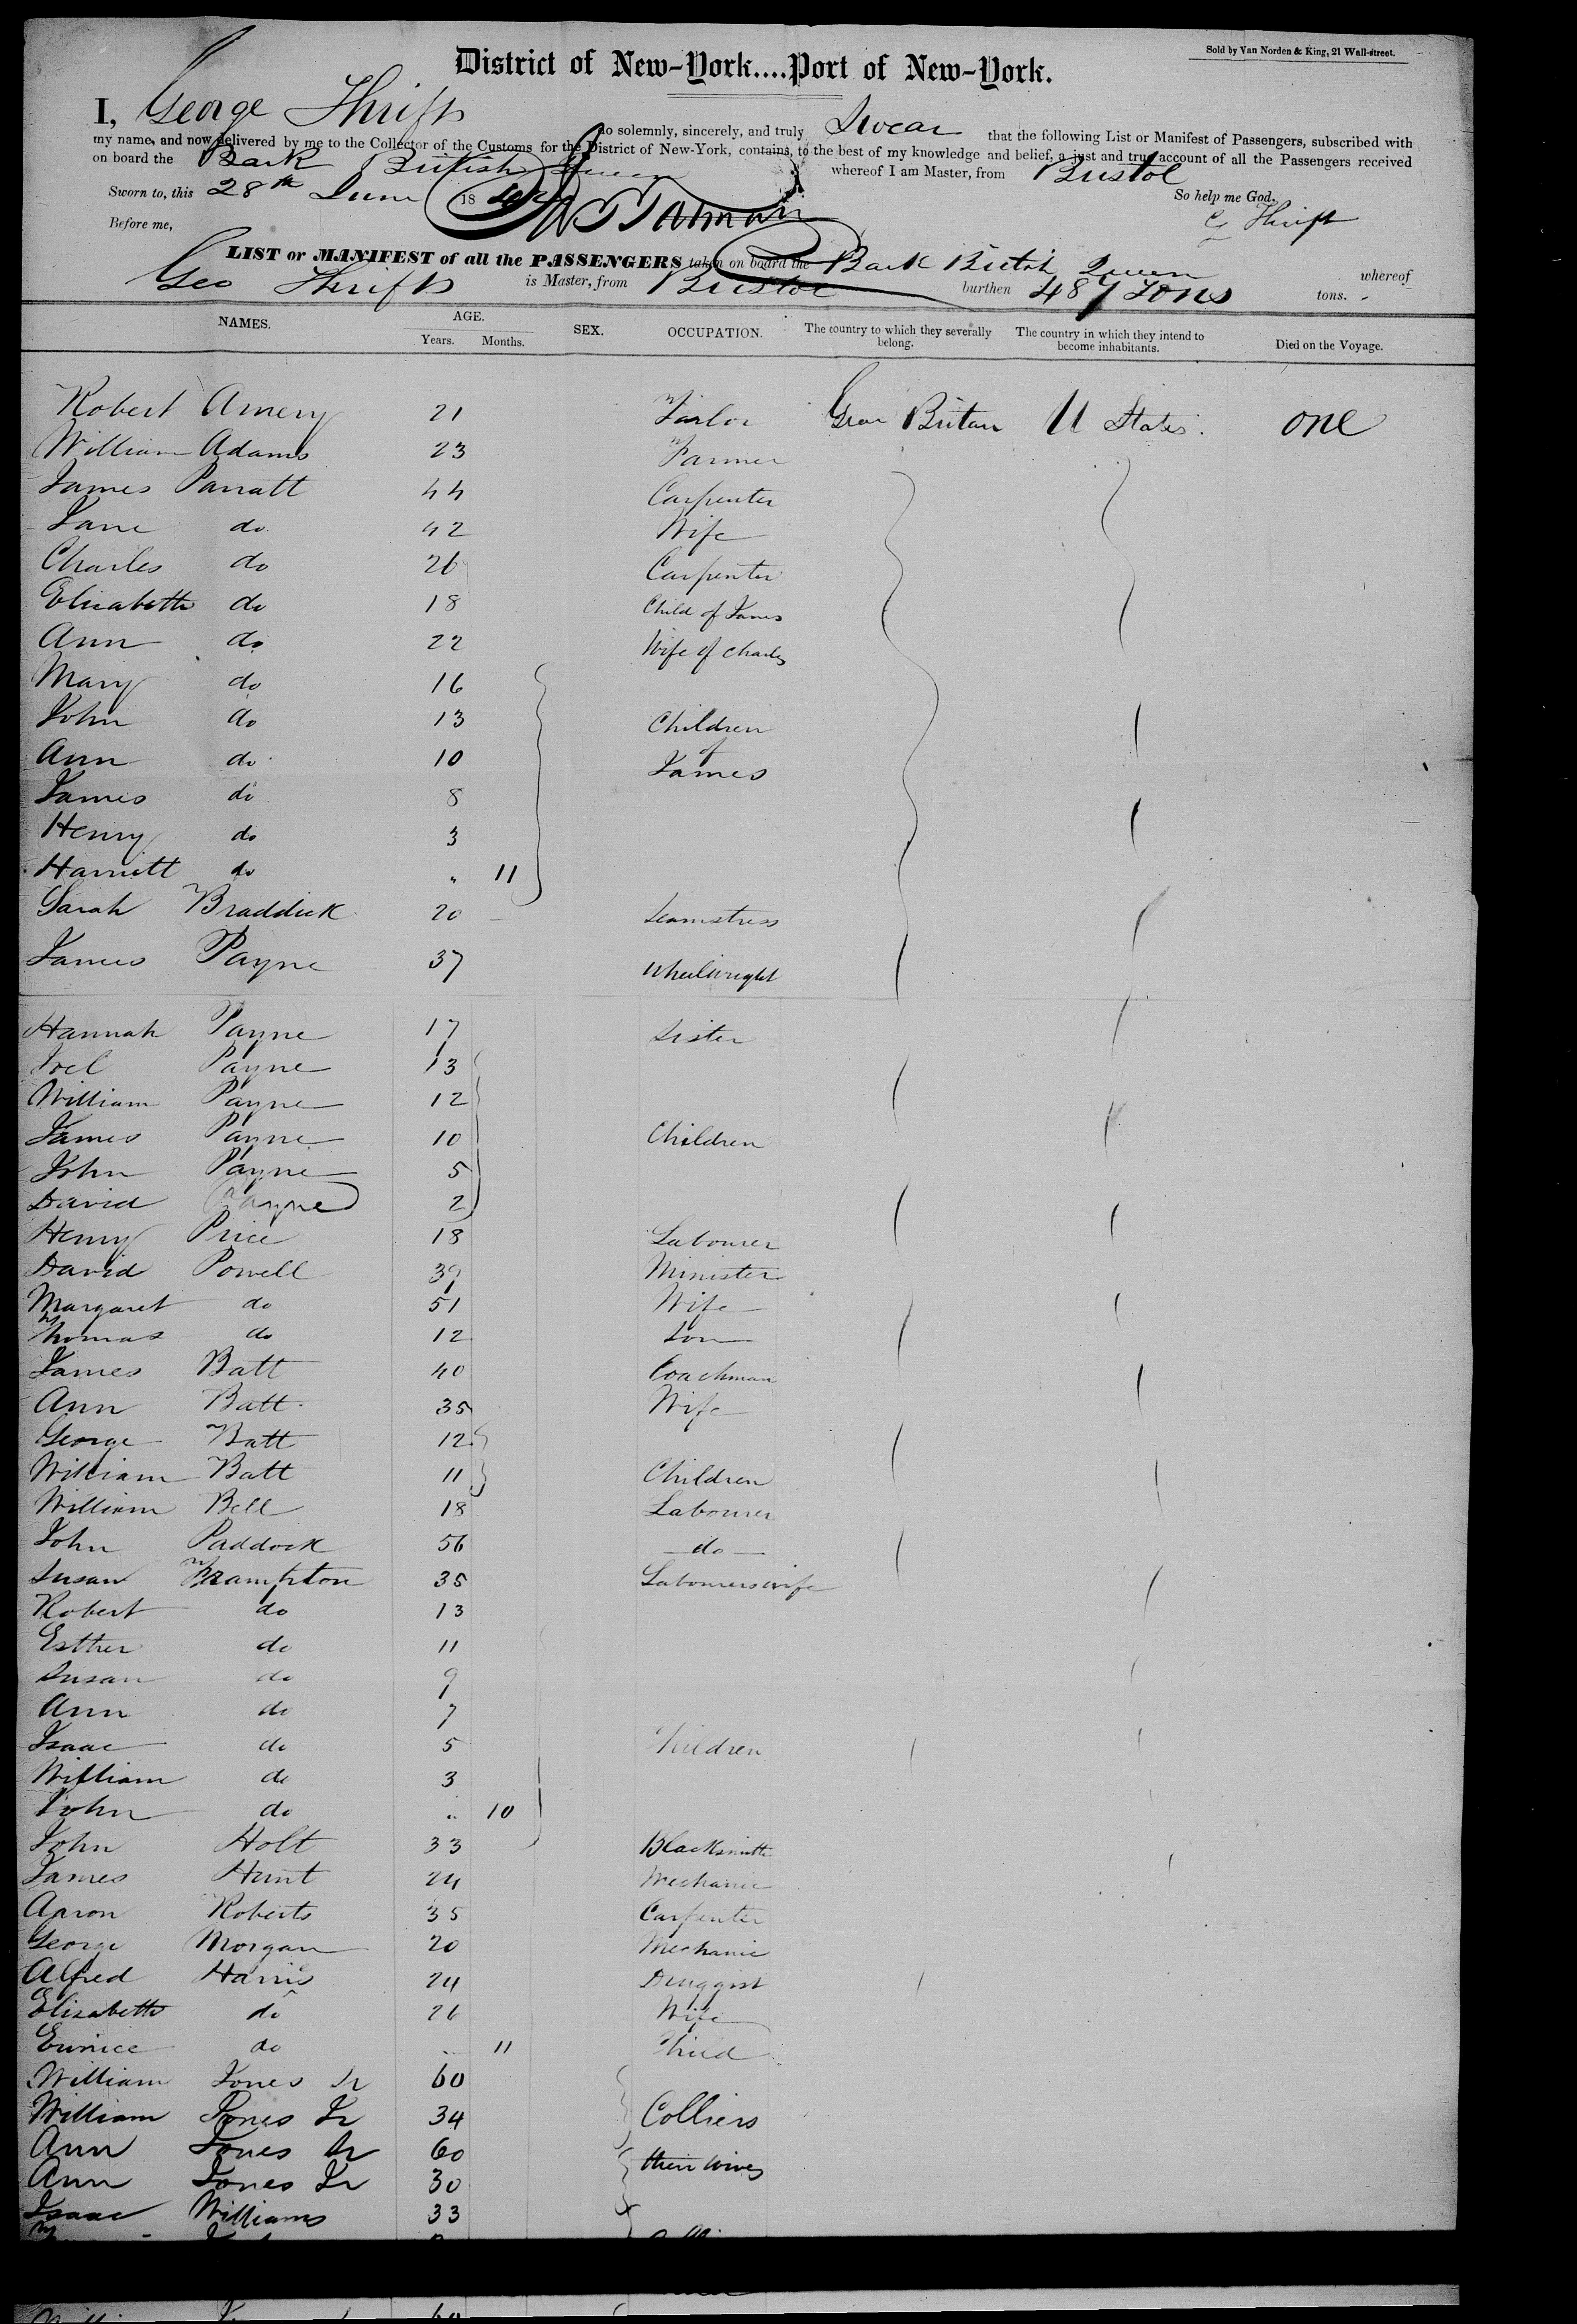 Sold by Van Norden & King, 21 Wall-street.
District of New-York....Port of New-York.
I, George Thrift do solemnly, sincerely, and truly Swear that the following List or Manifest of Passengers, subscribed with
my name, and now delivered by me to the Collector of the Customs for the District of New-York, contains, to the best of my knowledge and belief, a just and true account of all the Passengers received
on board the Bark British Queen whereof I am Master, from Bristol
Sworn to, this 28th June 18 So help me God.
Before me, G Thrift
LIST or MANIFEST of all the PASSENGERS taken on board the Bark British Queen whereof
Geo Thrift is Master, from Bristol burthen 487 Tons tons.
NAMES. AGE. SEX. OCCUPATION. The country to which they severally belong. The country in which they intend to become inhabitants. Died on the Voyage.
Years. Months.
Robert Amery 21 Tailor Great Britain U States. one
William Adams 23 Farmer
James Parratt 44 Carpenter
Jane do 42 Wife
Charles do 26 Carpenter
Elizabeth do 18 Child of James
Ann do 22 Wife of Charles
Mary do 16
John do 13 Children
Ann do 10 of James
James do 8
Henry do 3
Harriett do " 11
Sarah Braddick 20 Seamstress
James Payne 37 Wheelwright
Hannah Payne 17 Sister
Joel Payne 13
William Payne 12
James Payne 10 Children
John Payne 5
David Payne 2
Henry Price 18 Labourer
David Powell 39 Minister
Margaret do 51 Wife
Thomas do 12 Son
James Batt 40 Coachman
Ann Batt 35 Wife
George Batt 12
William Batt 11 Children
William Bell 18 Labourer
John Paddock 56 do
Susan Brampton 35 Labourers wife
Robert do 13
Esther do 11
Susan do 9
Ann do 7
Isaac do 5 Children
William do 3
John do " 10
John Holt 33 Blacksmith
James Hunt 24 Mechanic
Aaron Roberts 35 Carpenter
George Morgan 20 Mechanic
Alfred Harris 24 Druggist
Elizabeth do 26 Wife
Eunice do " 11 Child
William Jones Sr 60
William Jones Jr 34 Colliers
Ann Jones Sr 60
Ann Jones Jr 30 their wives
Isaac Williams 33